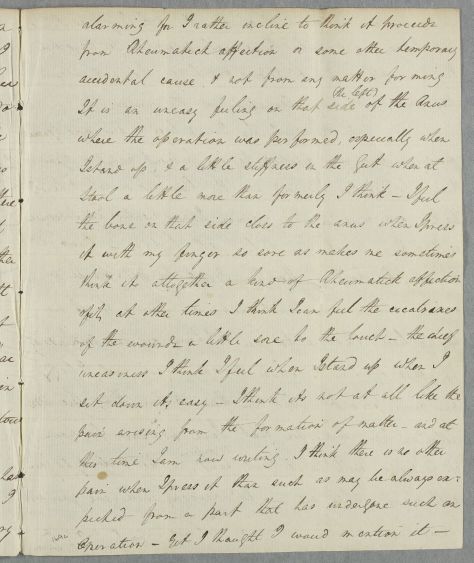 alarming for I rather incline to think it proceeds
from Rheumatick affection or some other temporary
accidental cause & not from any matter forming
(the left)
It is an uneasy feeling on that side of the Anus
where the operation was performed, especially when
I stand up, & a little stiffness in the Gut when at
Stool a little more than formerly I think – I feel
the bone on that side close to the anus when I press
it with my finger so sore as makes me sometimes
think its altogether a kind of Rheumatick affection
of it, at other times I think I can feel the
of the wounds a little sore to the touch – the chief
uneasiness I think I feel when I stand up when I
sit down its easy – I think its not at all like the
pain arising from the formation of matter – and at
this time I am now writing I think there is no other
pain when I press it than such as may be always ex-
pected from a part that has undergone such an
Operation – yet I thought I would mention it –